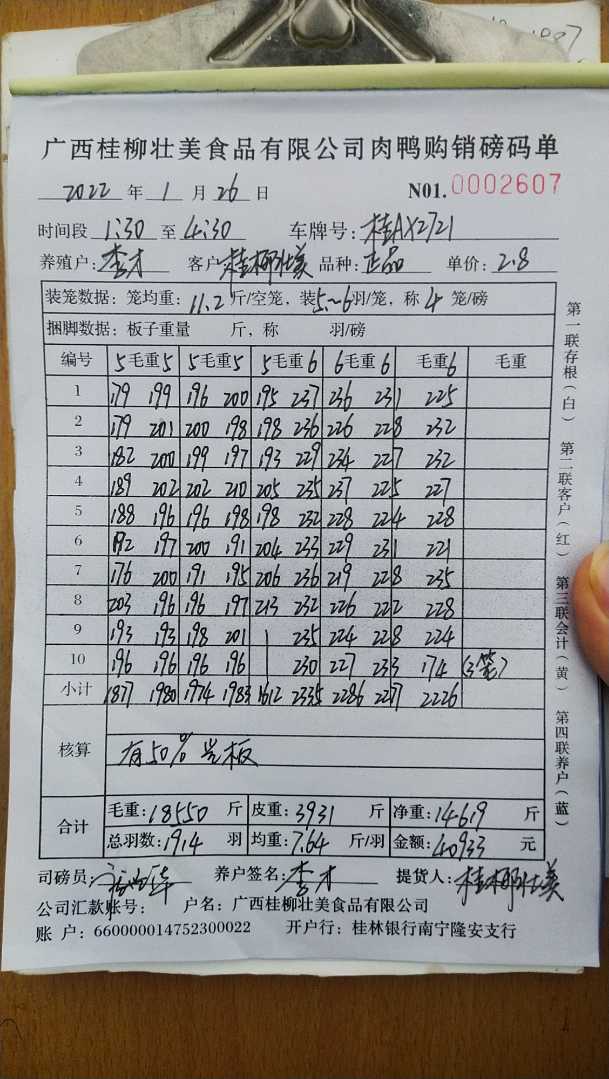 广西桂柳壮美食品有限公司肉鸭购销磅码单
2022 年 1 月 26 日 N01. 0002607
时间段 1:30 至 4:30 车牌号: 桂AX2721
养殖户: 李才 客户 桂柳壮美 品种: 正品 单价: 2.8
装笼数据: 笼均重: 11.2 斤/空笼, 装 5~6 羽/笼, 称 4 笼/磅
捆脚数据: 板子重量 斤, 称 羽/磅
编号 5毛重5 5毛重5 5毛重6 6毛重6 毛重6 毛重
1 179 199 196 200 195 237 236 231 225
2 179 201 200 198 198 236 226 228 232
3 182 200 199 197 193 229 234 227 232
4 189 202 202 210 205 235 237 225 227
5 188 196 196 198 198 232 228 224 228
6 192 197 200 191 204 233 229 231 221
7 176 200 191 195 206 236 219 228 235
8 203 196 196 197 213 232 226 222 228
9 193 193 198 201 | 235 224 228 224
10 196 196 196 196 | 230 227 233 174 (3笼)
小计 1877 1980 1974 1983 1612 2335 2286 2277 2226
核算 有50% 光板
合计 毛重: 18550 斤 皮重: 3931 斤 净重: 14619 斤
总羽数: 1914 羽 均重: 7.64 斤/羽 金额: 40933 元
司磅员: 养户签名: 李才 提货人: 桂柳壮美
公司汇款账号: 户名: 广西桂柳壮美食品有限公司
账 户: 660000014752300022 开户行: 桂林银行南宁隆安支行
第一联存根(白) 第二联客户(红) 第三联会计(黄) 第四联养户(蓝)